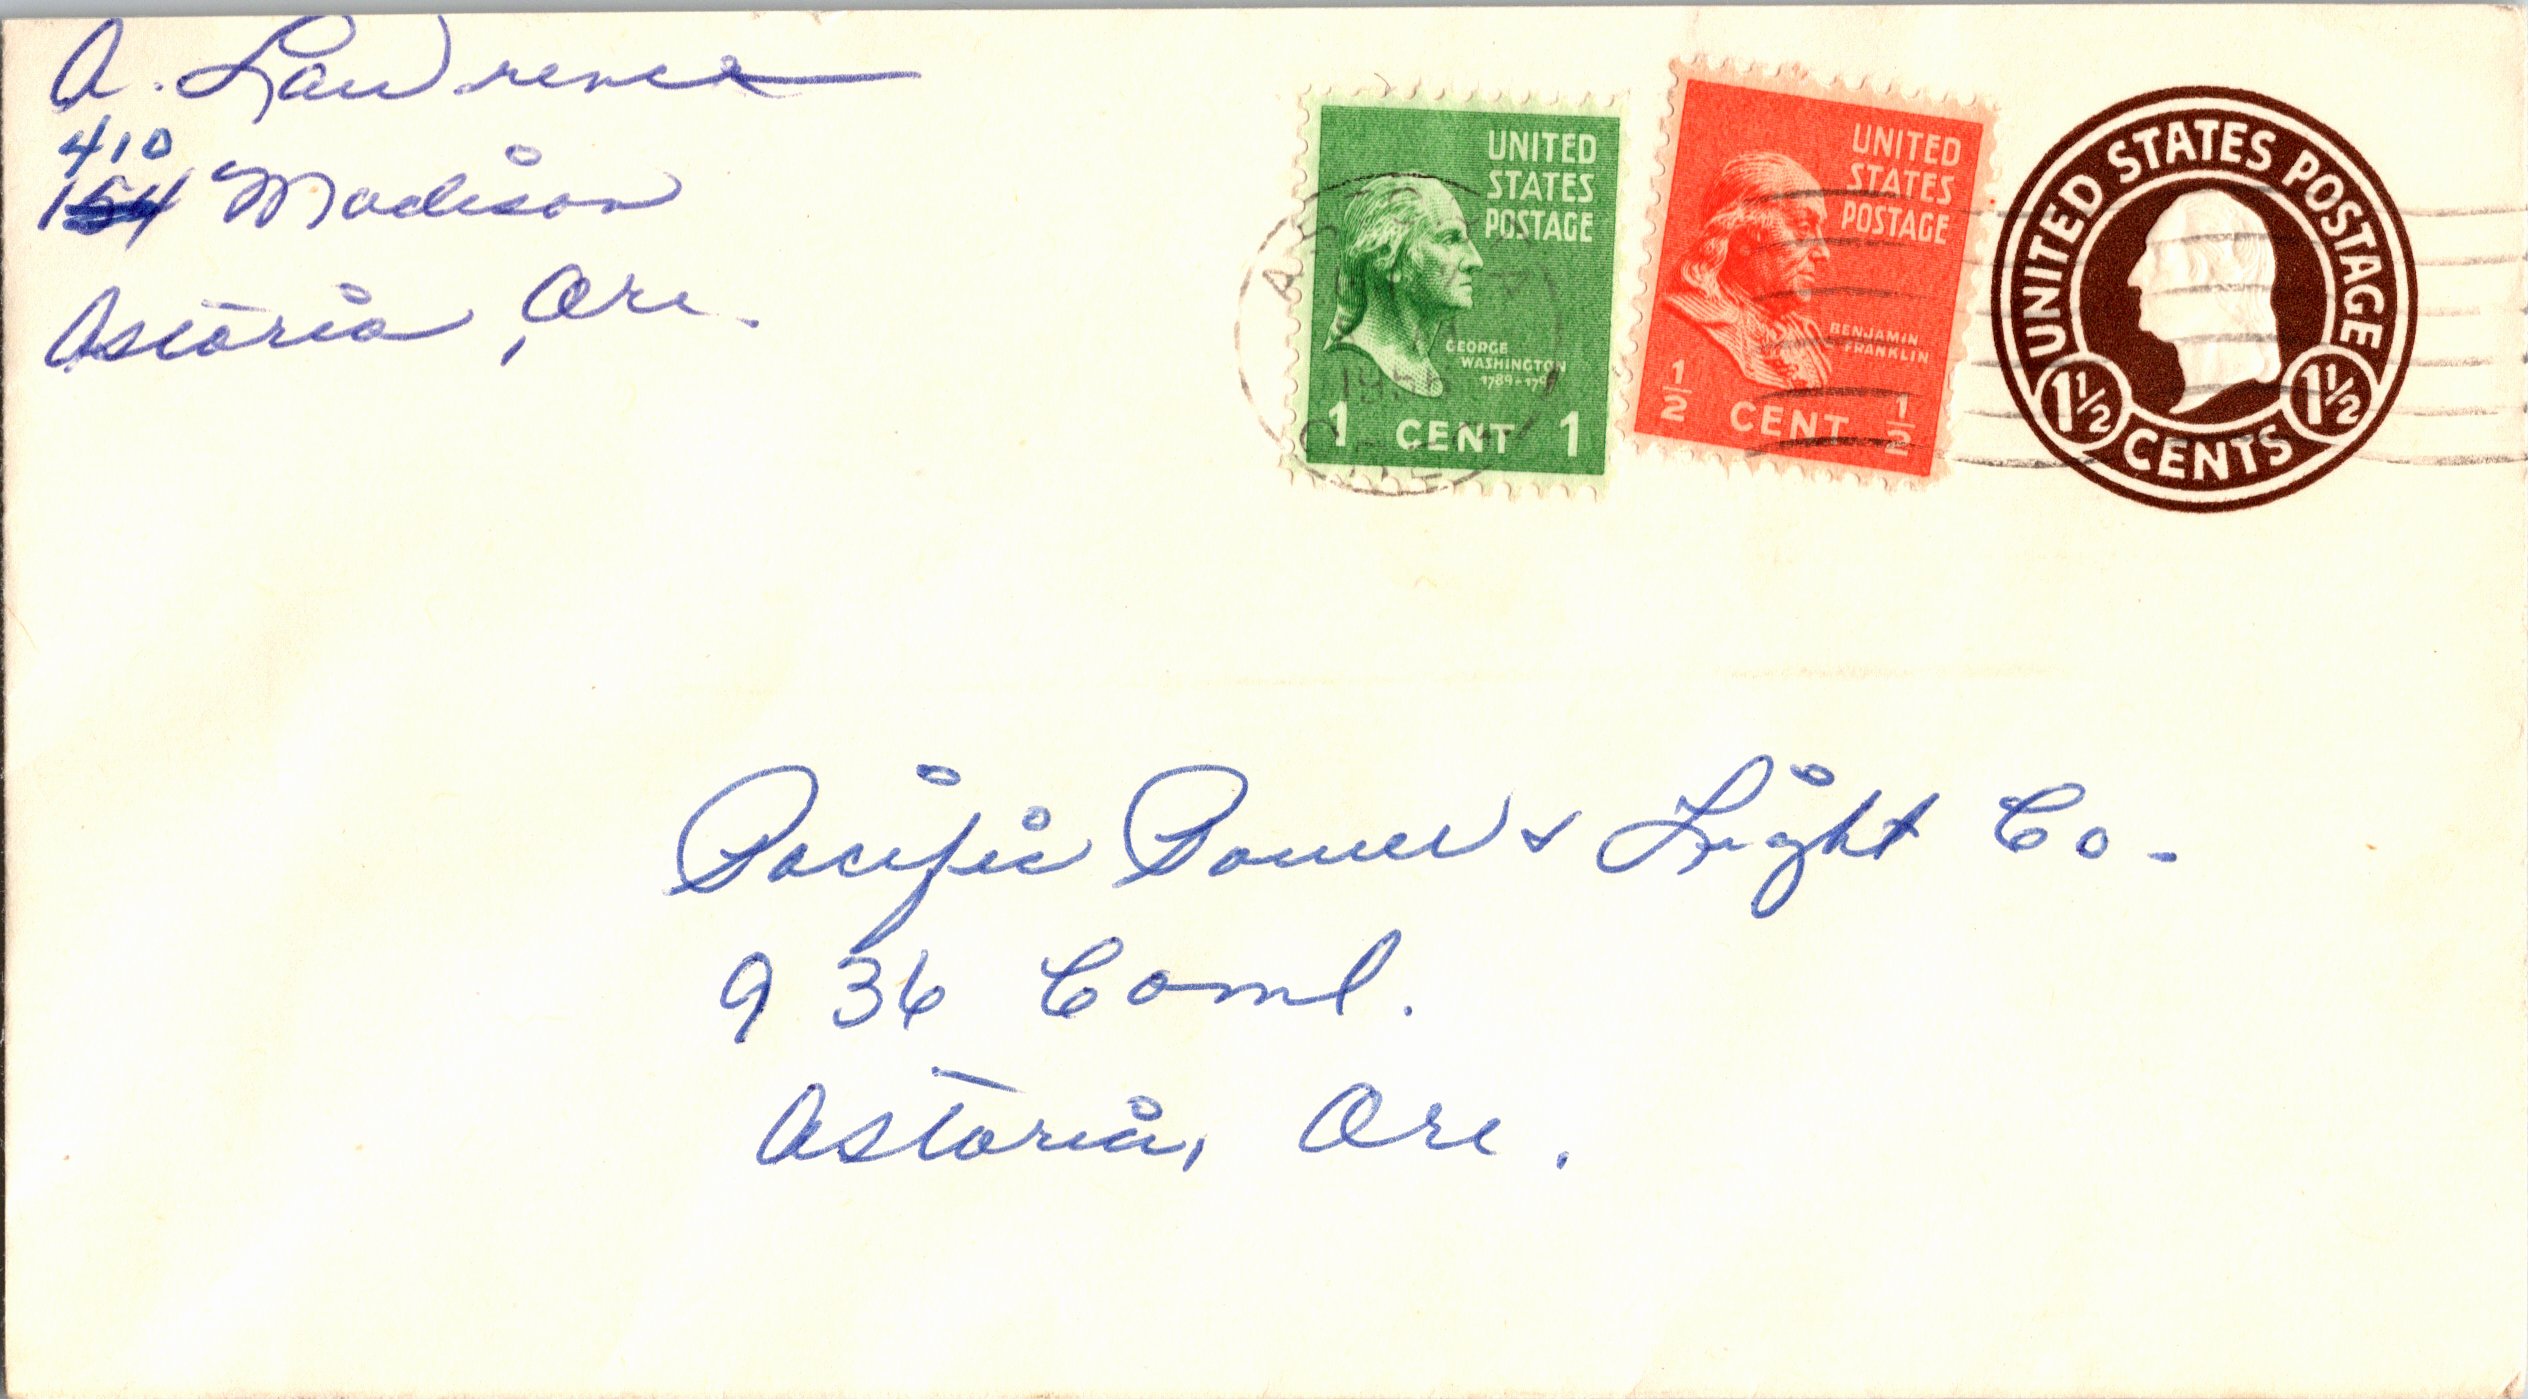 A. Lawrence
410
154 Madison
Astoria, Ore.
UNITED
STATES
POSTAGE
GEORGE
WASHINGTON
1 CENT 1
UNITED
STATES
POSTAGE
BENJAMIN
FRANKLIN
1/2 CENT 1/2
UNITED STATES POSTAGE
1 1/2 CENTS 1 1/2
Pacific Power & Light Co.
936 Coml.
Astoria, Ore.